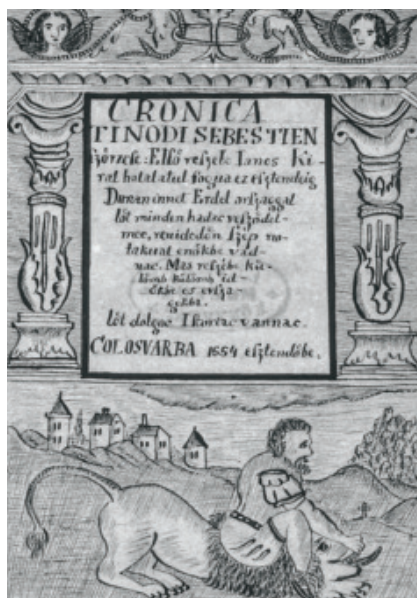 CRONICA
TINODI SEBESTIEN
szörzese: Elsö resze be Imes Ki-
ral halalatul fogua ez esztendeig
Dunan innet Erdel orszaggal
löt minden hadac veszödel-
mec, reuideden szép no-
takual enökbe vad-
nac. Mas reszebe kü-
lömb külömb id-
ökbe es orsza-
gokba.
löt dolgoc Istoriac vannac.
COLOSVARBA 1554 esztendöbe.